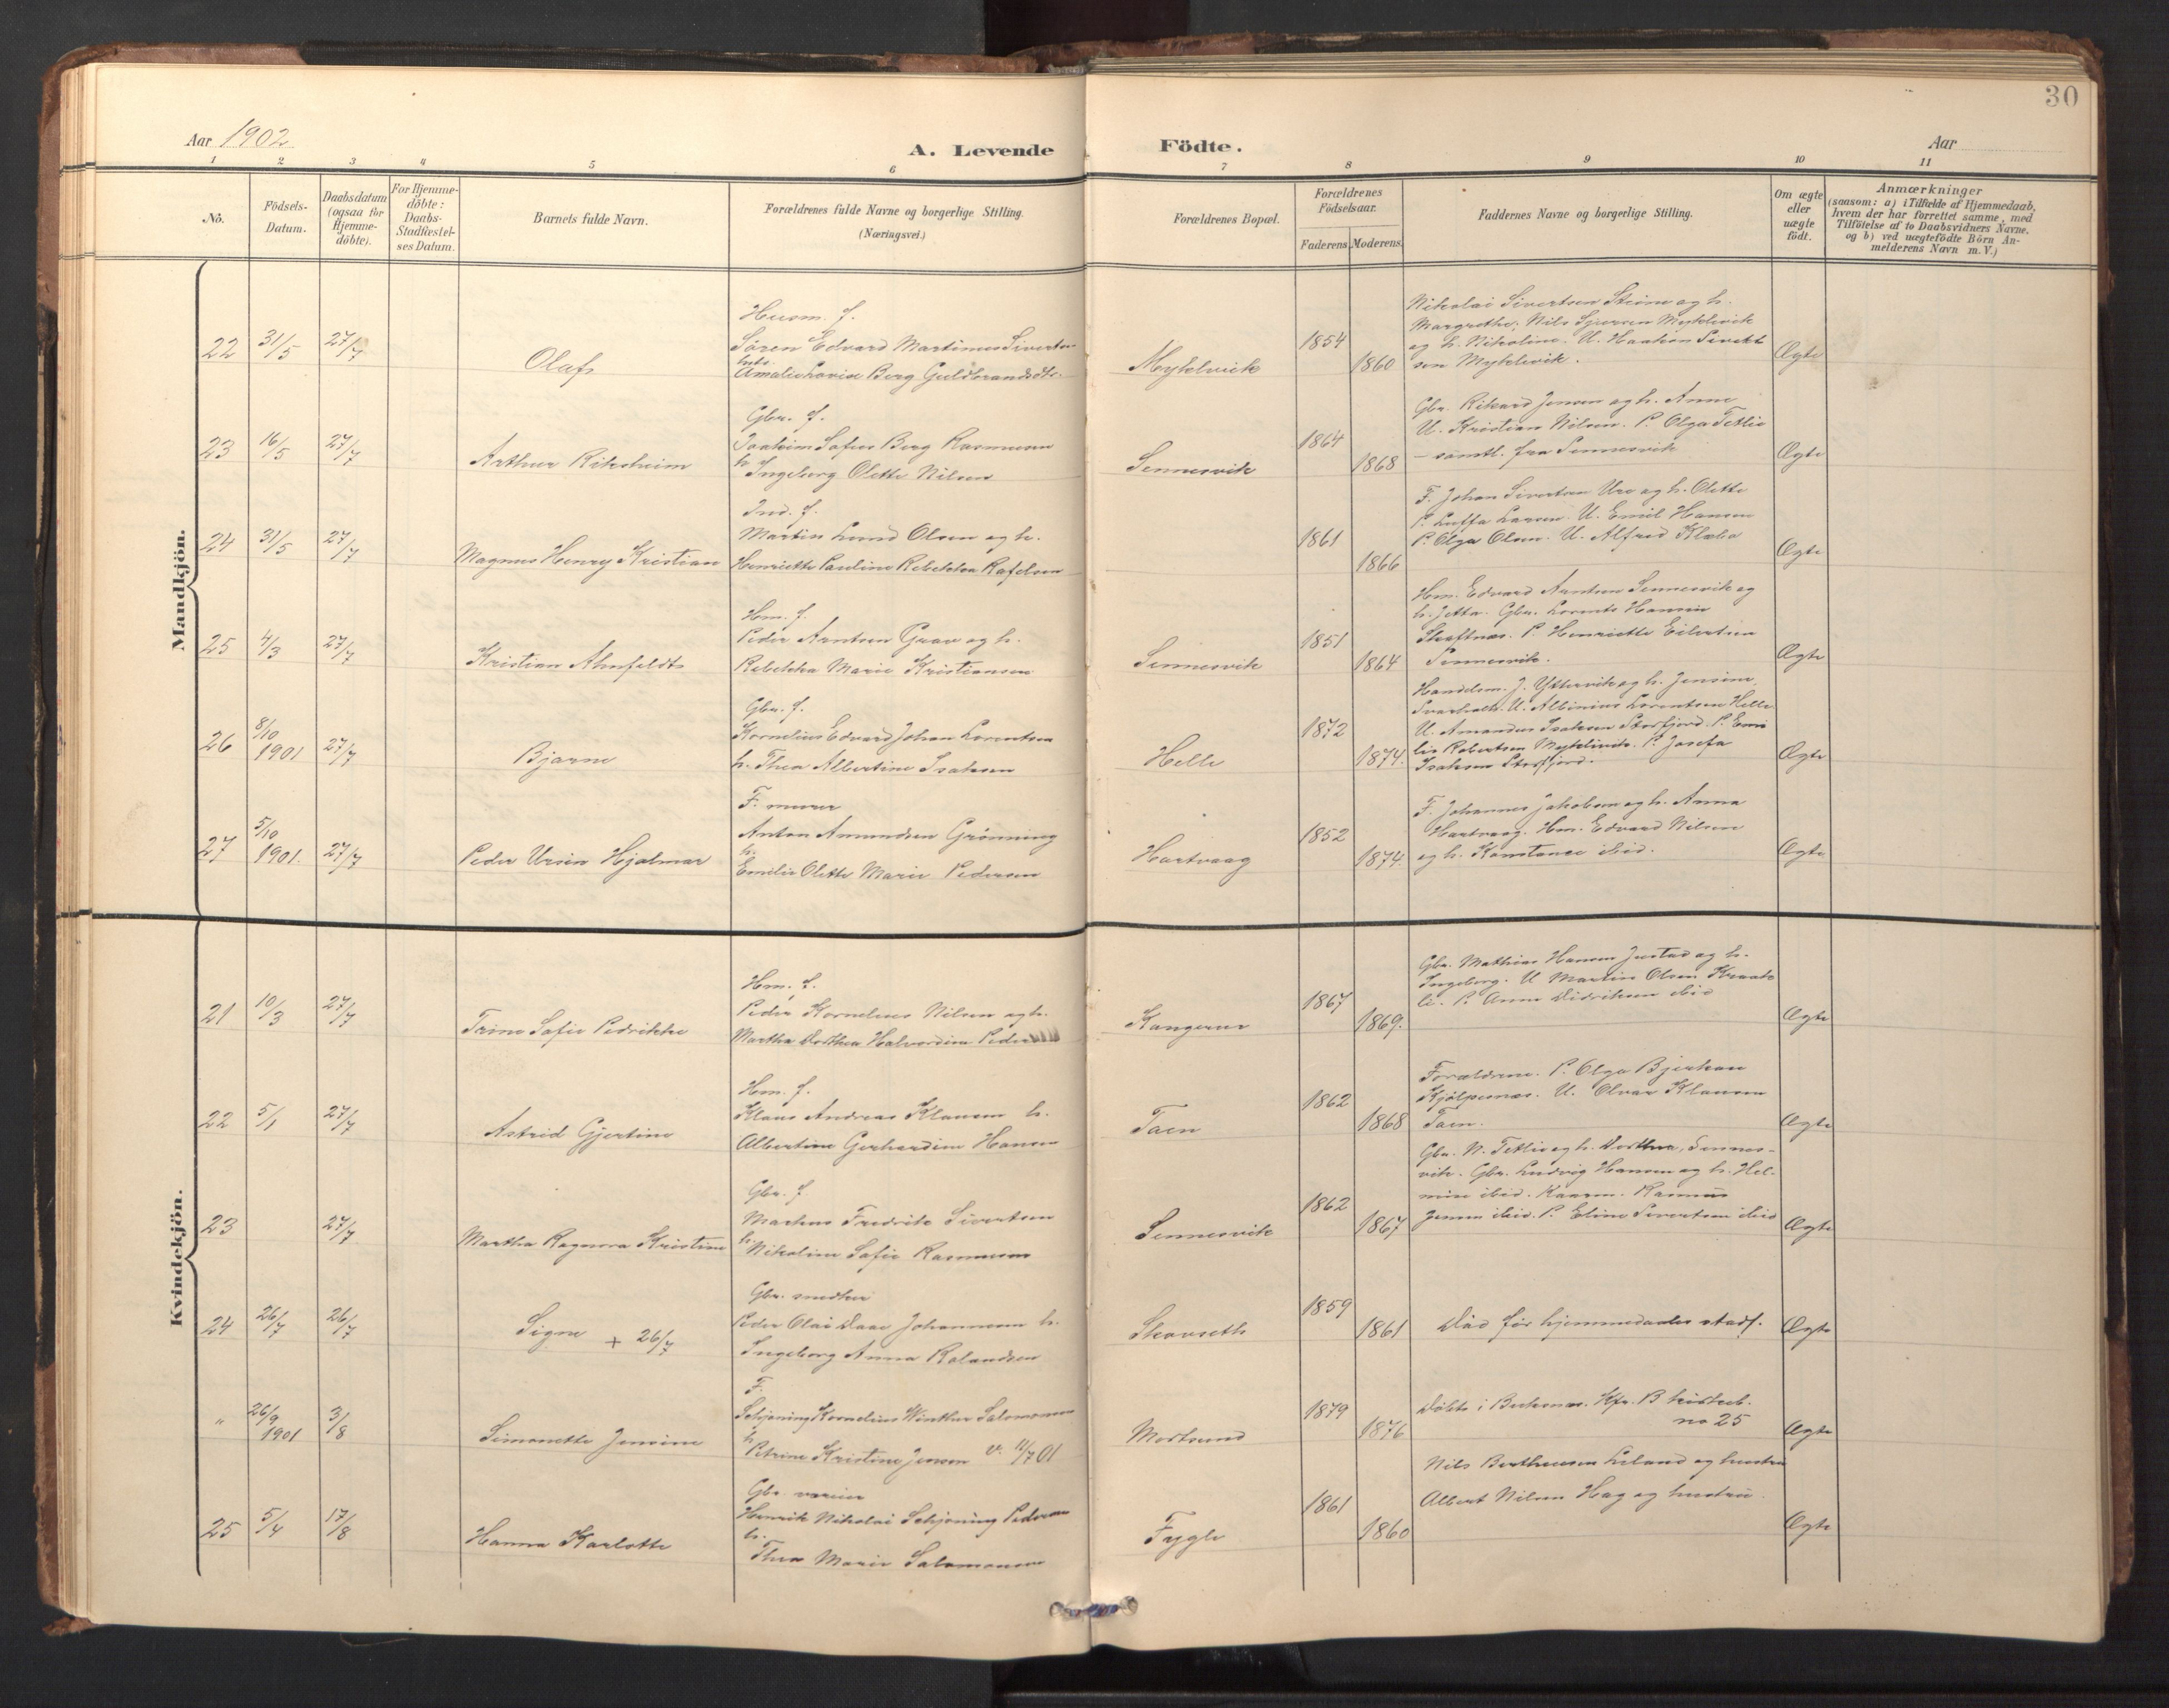 30
Aar 1902
A. Levende
Födte.
Aar
1 2 3 4 5 6 7 8 9 10 11
No.
Födsels-
Datum.
Daabsdatum
(ogsaa for
Hjemme-
döbte).
For Hjemme-
döbte:
Daabs-
Stadfæstel-
ses Datum.
Barnets fulde Navn.
Forældrenes fulde Navne og borgerlige Stilling.
(Næringsvei.)
Forældrenes Bopæl.
Forældrenes
Födselsaar.
Faderens
Moderens.
Faddernes Navne og borgerlige Stilling.
Om ægte
eller
uægte
födt.
Anmærkninger
(saasom: a) i Tilfælde af Hjemmedaab,
hvem der har forrettet samme, med
Tilföielse af to Daabsvidners Navne,
og b) ved uægtefödte Börn An-
melderens Navn m. V.)
Mandkjön.
22 31/5 27/7
Olaf
Husm. f.
Sören Edvard Martinus Sivertsen
hts.
Amalie Lovise Berg Guldbrandsdtr.
Myklevik
1854
1860
Nikolai Sivertsen Steine og h.
Margrethe; Nils Myklevik
og h. Nikoline. U. Haakon Sivert
sen Myklevik.
Ægte
23 16/5 27/7
Arthur Riksheim
Gbr. f.
Joakim Sofus Berg Rasmussen
h. Ingeborg Olette Nilsen
Sennesvik
1864
1868
Gbr. Rikard Jensen og h. Anne
U. Kristian Nilsen. P. Olga Tetlie
– samtl. fra Sennesvik
Ægte
24 31/5 27/7
Magnus Henry Kristian
Ind. f.
Martin Lund Olsen og h.
Henriette Pauline Rebekka Rafelsen
1861
1866
F. Johan Sivertsen Ure og h. Olette
P. Luffa Larsen. U. Emil Hansen
P. Olga Olsen. U. Alfred Klæbo
Ægte
25 4/3 27/7
Kristian Ahnfeldt
Hm. f.
Peder Arntsen Grav og h.
Rebekka Marie Kristiansen
Sennesvik
1851
1864
Hm. Edvard Arntsen Sennesvik og
h. Jetta. Gbr. Lorents Hansen
Skaftnæs. P. Henriette Eilertsen
Sennesvik.
Ægte
26 8/10 1901 27/7
Bjarne
Gbr. f.
Kornelius Edvard Johan Lorentsen
h. Thea Albertine Isaksen
Helle
1872
1874.
Handelsm. J. Yttervik og h. Jensine
Svarholt. U. Albinius Lorentsen Helle
U. Amandus Isaksen Storfjord. P. Emi
lie Robertsen Myklevik. P. Josefa
Isaksen Storfjord.
Ægte
27 5/10 1901. 27/7
Peder Ursin Hjalmar
F. murer
Anton Amundsen Grönning
h.
Emilie Olette Marie Pedersen
Hartvaag
1852
1874.
F. Johannes Jakobsen og h. Anna
Hartvaag. Hm. Edvard Nilsen
og h. Konstance ibid.
Ægte
Kvindekjön.
21 10/3 27/7
Trine Sofie Pedrikke
Hm. f.
Peder Kornelius Nilsen og h.
Martha Dorthea Halvordine Peder
Kangerur
1867
1869.
Gbr. Mathias Hansen Justad og h.
Ingeborg. U. Martin Olsen Kraak
li. P. Anne Didriksen ibid
Ægte
22 5/1 27/7
Astrid Gjertine
Hm. f.
Klaus Andreas Klausen h.
Albertine Gerhardine Hansen
Taen
1862
1868
Forældrene. P. Olga Bjerkan
Kjölpesnæs. U. Olvar Klausen
Taen.
Ægte
23 27/7
Martha Ragnora Kristine
Gbr. f.
Markus Fredrik Sivertsen
h. Nikoline Sofie Rasmussen
Sennesvik
1862
1867
Gbr. N. Tetlie og h. Dorthea, Sennes-
vik. Gbr. Ludvig Hansen og h. Hel-
mine ibid. Kaarm. Rasmus
Jensen ibid. P. Eline Sivertsen ibid
Ægte
24 26/7 26/7
Signe + 26/7
Gbr. snedker
Peder Olai Daae Johannesen h.
Ingeborg Anna Rolandsen
Skarseth
1859
1861
Död för hjemmedaabs stadf.
Ægte
" 26/9 1901 3/8
Simonette Jensine
F.
Schjöning Kornelius Winther Salomonsen
h.
Petrine Kristine Jensen v. 11/7 01
Mortsund
1879
1876
Döbt i Buksnes. Kfr. B. kirkeb.
no 25
Ægte
25 5/4 17/8
Hanna Karlotte
Gbr.
Henrik Nikolai Schjöning Pedersen
h.
Thea Marie Salomonsen
Fygle
1861
1860
Nils Bertheusen Leland og hustru
Albert Nilsen Hag og hustru
Ægte